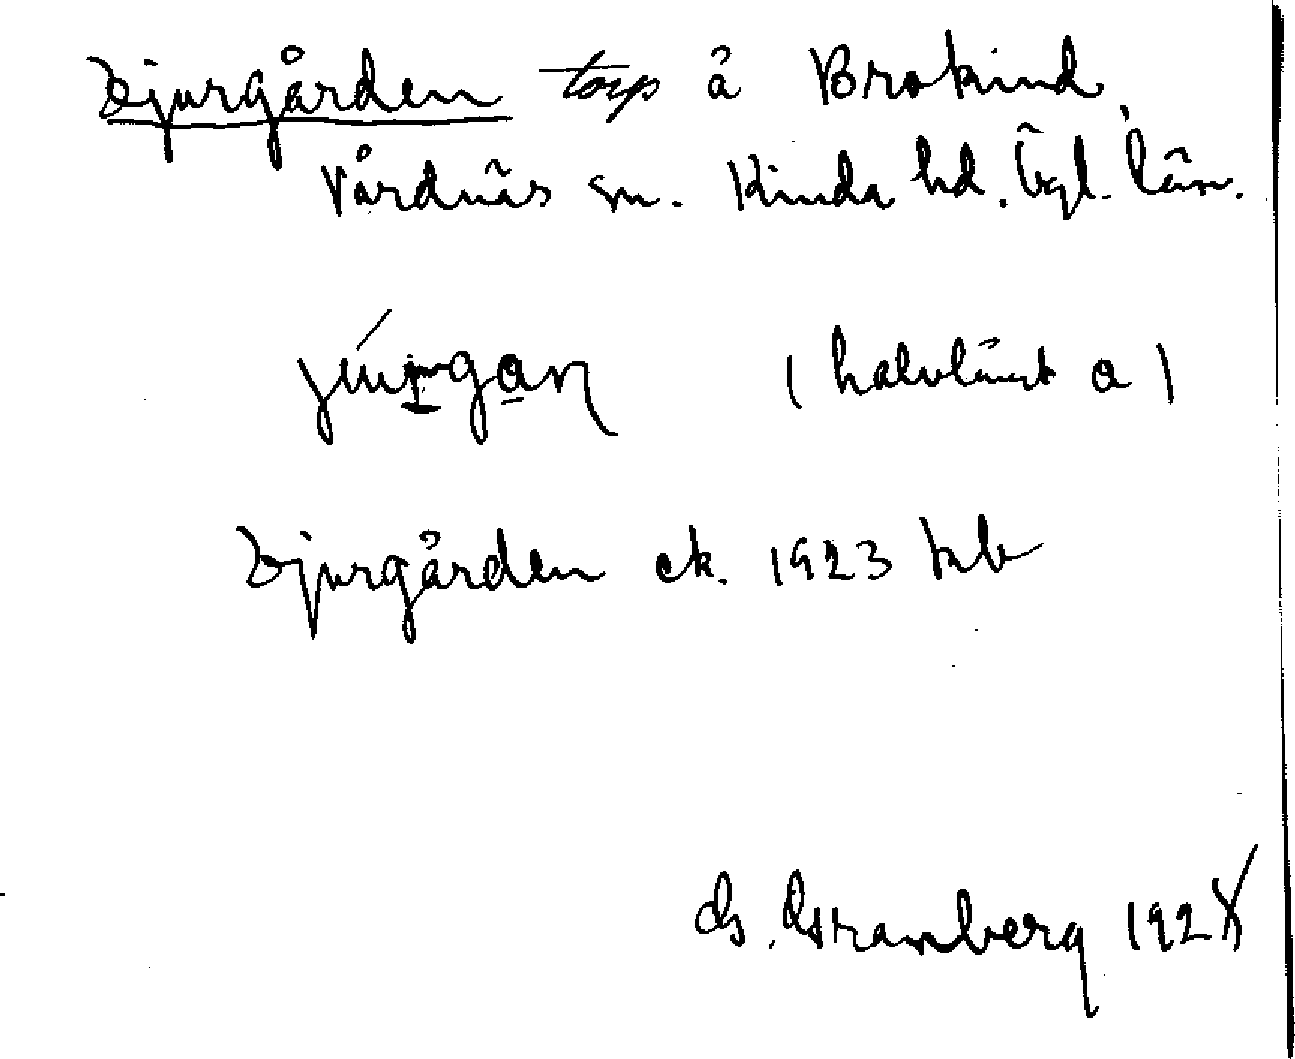 Djurgården torp å Brokind,
Vårdnäs sn. Kinda hd. Ögl. län.
(halvlångt a)
Djurgården ek. 1923 kb
192